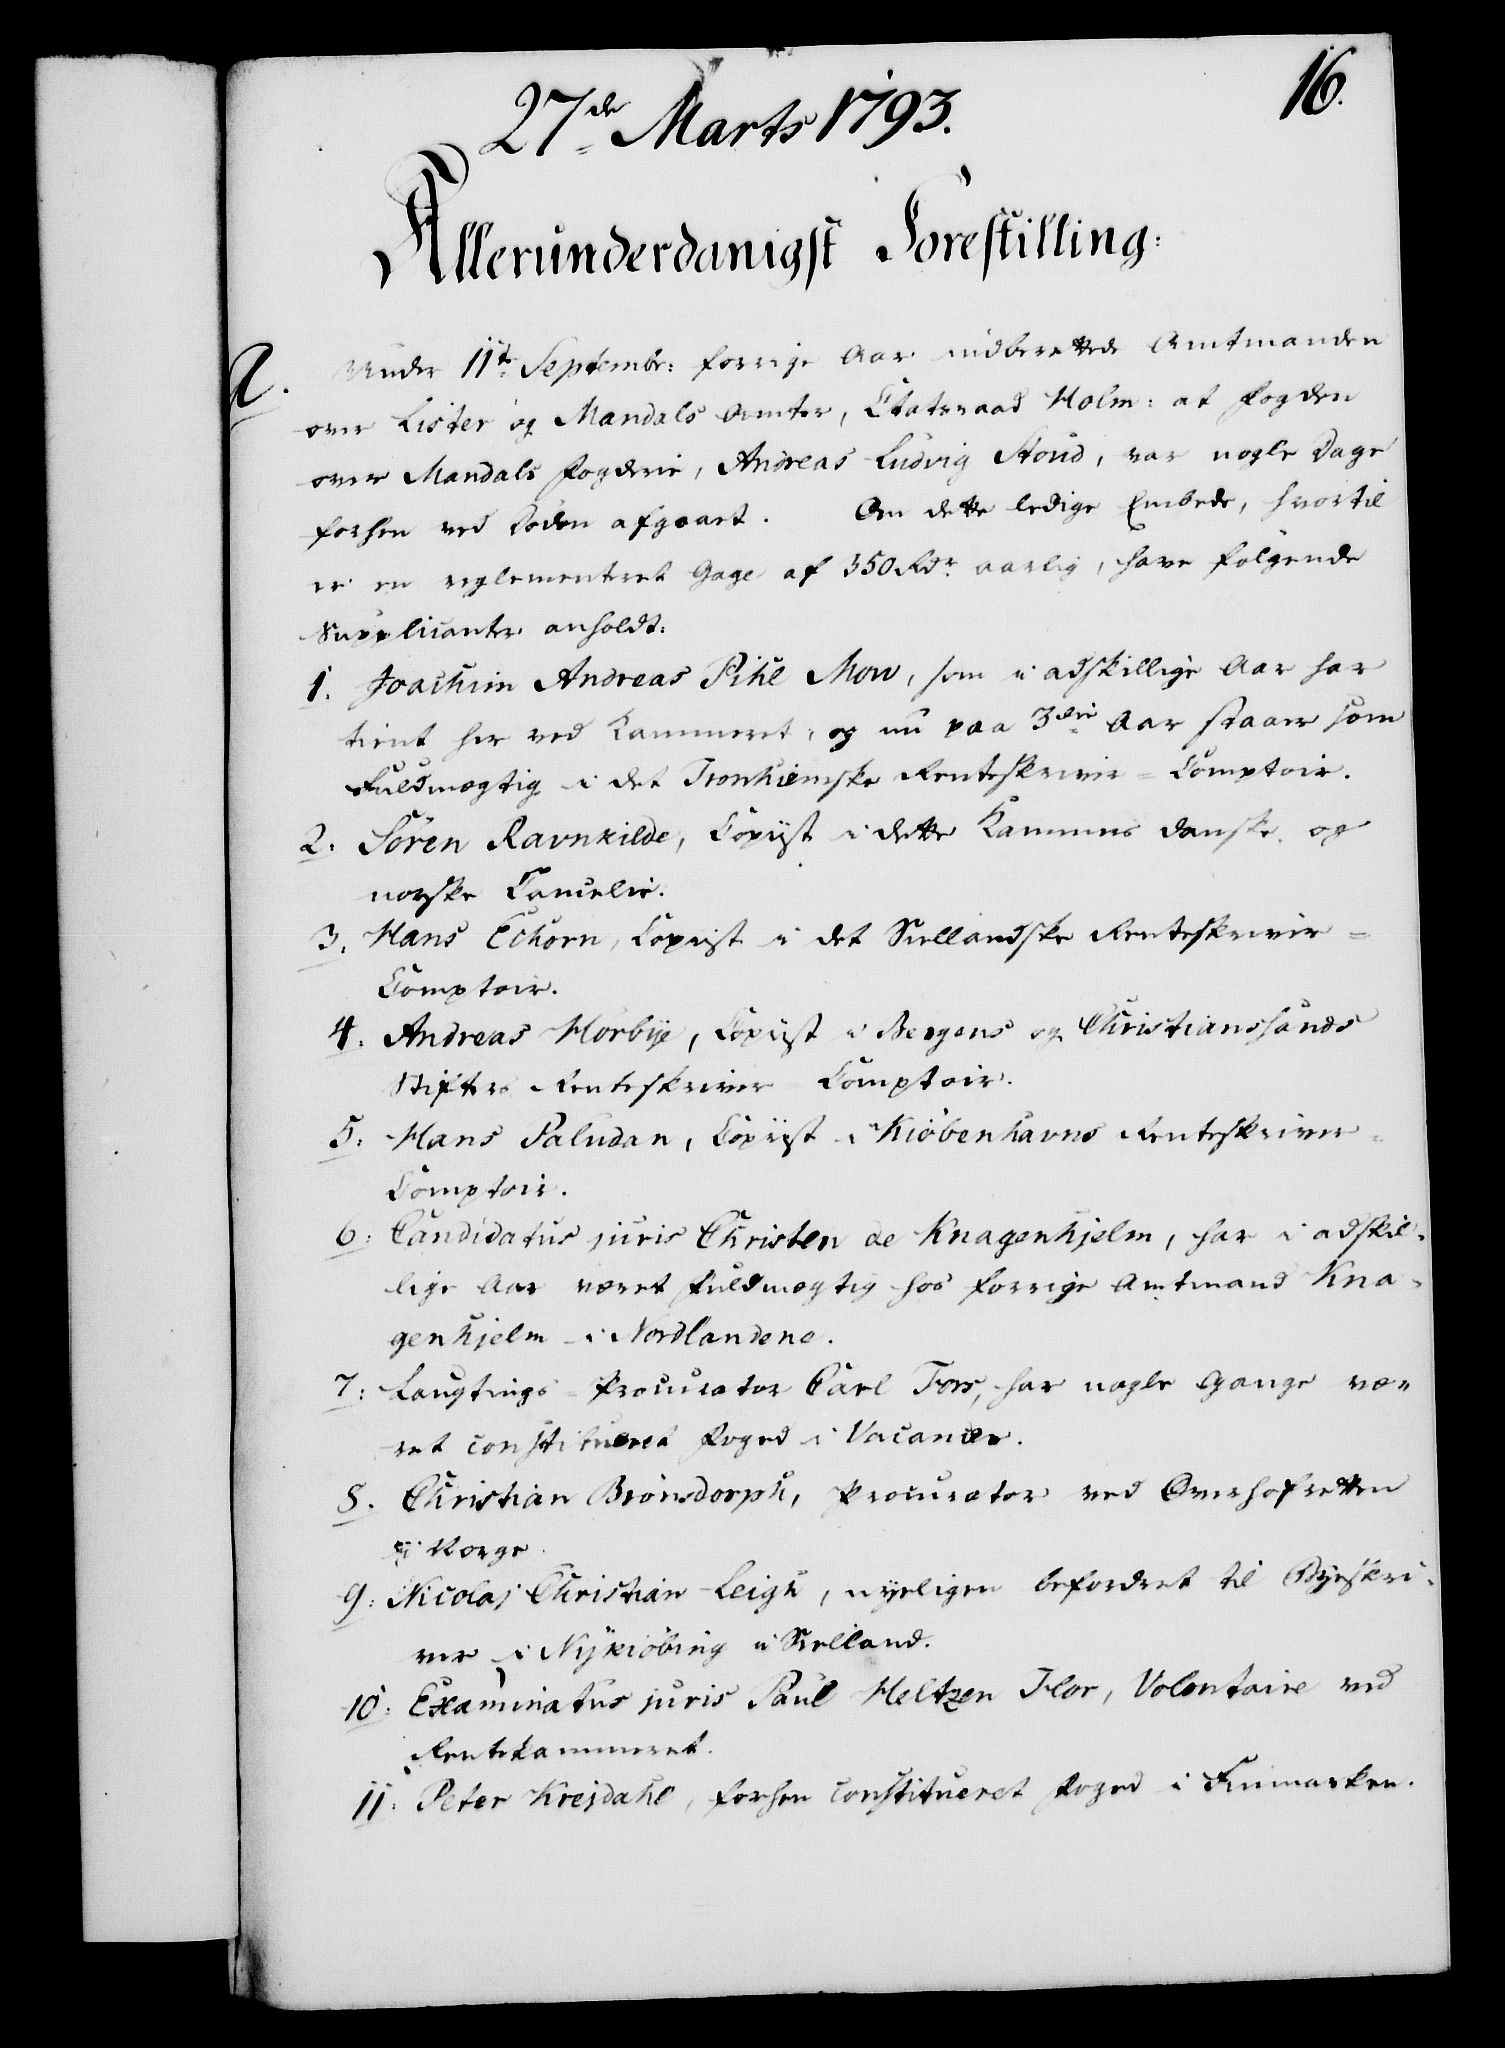 16.
27de Marts 1793.
Allerunderdanigst Forestilling:
A. Under 11te Septembr: forrige Aar indberettede Amtmanden
over Lister og Mandals Amter, Etatsraad Holm: at Fogden
over Mandals Fogderie, Andreas Ludvig Stoud, var nogle Dage
forhen ved Døden afgaaet. Om dette ledige Embede, hvortil
er en reglementeret Gage af 350 Rdr. aarlig, have følgende
Supplicantr anholdt:
1. Joachim Andreas Pihl Mow, som i adskillige Aar har
tient her ved Kammeret, og nu paa 3die Aar staaer som
Fuldmægtig i det Tronhiemske Renteskriver=Comptoir.
2. Søren Ravnkilde, Copiist i dette Kammers danske og
norske Cancelie.
3. Hans Echorn, Copiist i det Siellandske Renteskriver=
Comptoir.
4. Andreas Hørbye, Copiist i Bergens og Christiansands
Stifters Renteskriver Comptoir.
5: Hans Paludan, Copiist i Kiøbenhavns Renteskriver=
Comptoir.
6: Candidatus juris Christen de Knagenhjelm, har i adskil=
lige Aar været Fuldmægtig hos forrige Amtmand Kna=
genhjelm i Nordlandene.
7: Laugtings=Procurator Carl Fors, har nogle Gange væ=
ret constitueret Foged i Vacancer.
8. Christian Brønsdorph, Procurator ved Overhofretten
i Norge.
9: Nicolaj Christian Leigh, nyeligen befordret til Byeskri=
ver i Nykiøbing i Sielland.
10: Examinatus juris Paul Heltzen Flor, Volontaire ved
Rentekammeret.
11: Peter Krejdahl, forhen constitueret Foged i Finmarken.